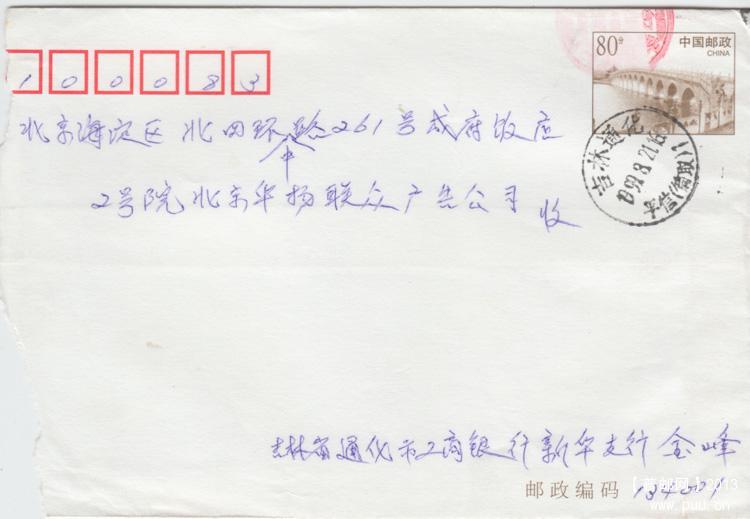 80分 中国邮政
CHINA
100083
北京海淀区北四环中路261号成府饭店
2号院北京华扬联众广告公司 收
吉林通化
吉林省通化市工商银行新华支行 金峰
邮政编码 134001
【首邮网】2013
www.puu.cn